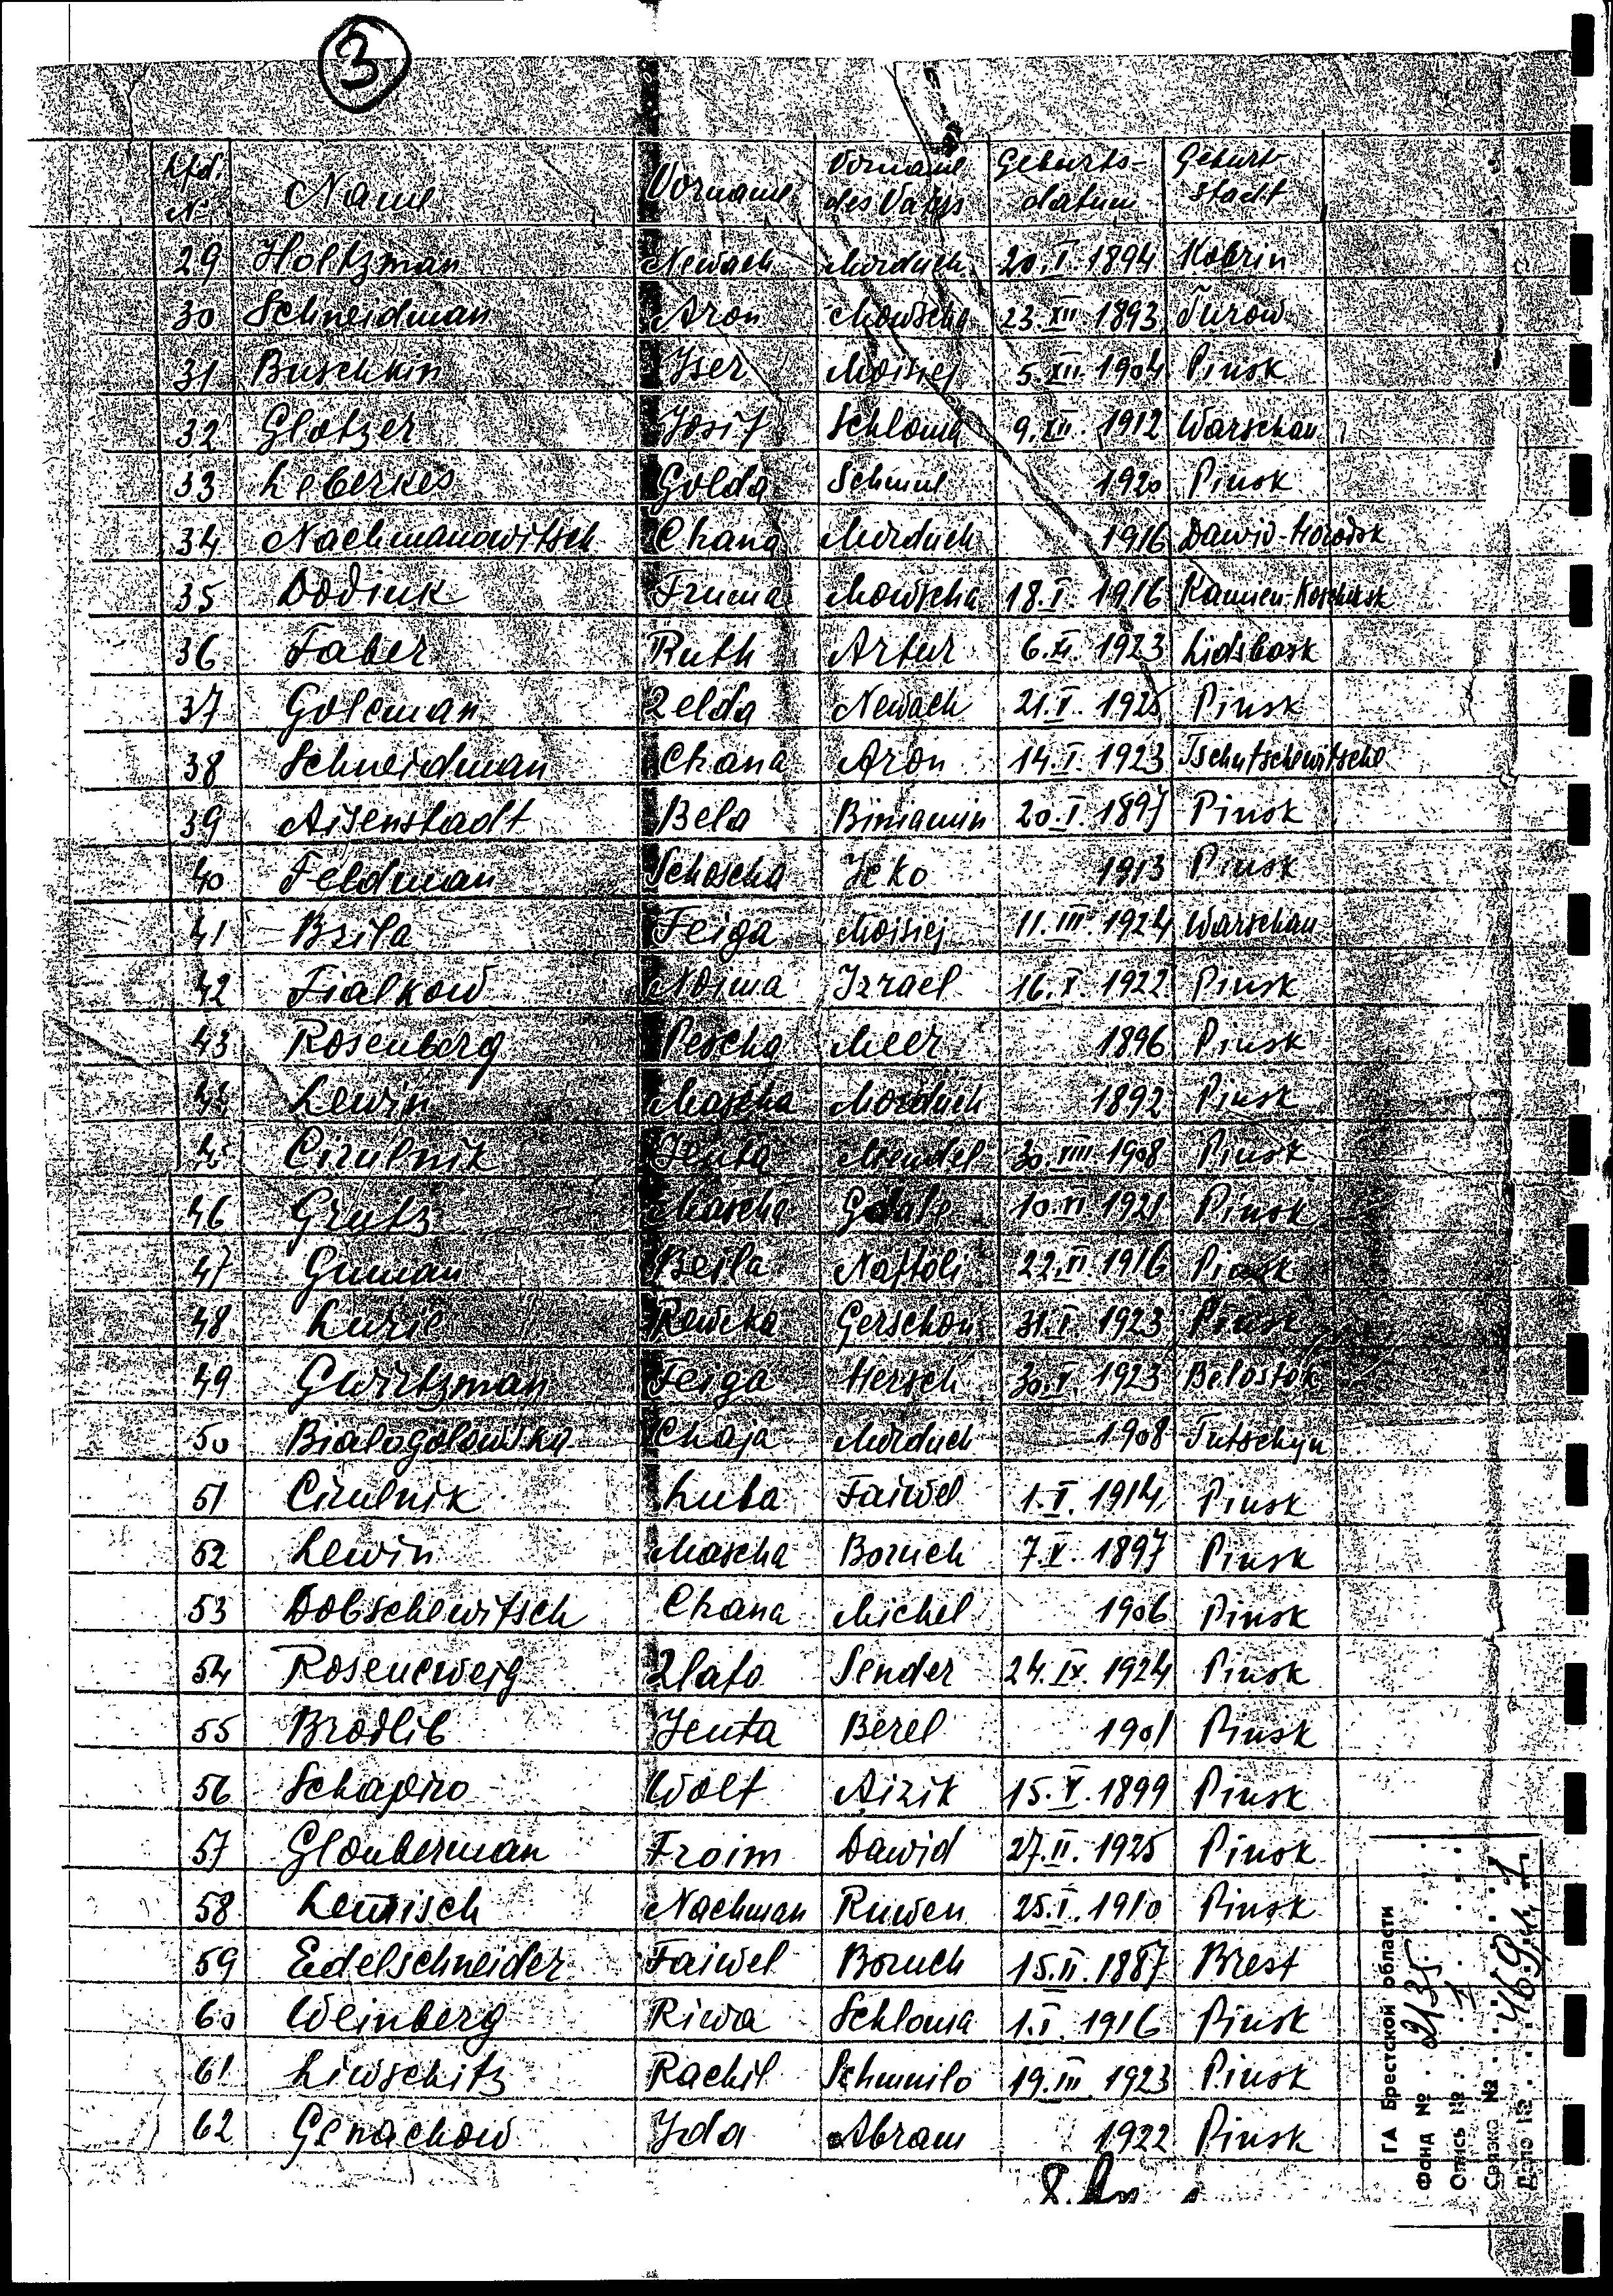 3
Lfd. № Name Vorname Vorname des Vaters Geburts-datum Geburt-stadt
29 Holtzman Newach Morduch 20.I.1894 Kobrin
30 Schneidman Aron Mowscha 23.XII.1893 Turow
31 Buschkin Jser Moisiej 5.XII.1904 Pinsk
32 Glotzer Josif Schloma 9.XII.1912 Warschau
33 Leberkes Golda Schmul 1920 Pinsk
34 Nachmanowitsch Chana Morduch 1916 Dawid-Horodok
35 Dodiuk Fruma Mowscha 18.I.1916 Kamien-Koschirsk
36 Faber Ruth Artur 1923 Lidsbark
37 Golcman Zelda Newach 21.I.1925 Pinsk
38 Schneidman Chana Aron 14.I.1923 Tschutschewitsche
39 Aisenstadt Bela Biniamin 20.I.1897 Pinsk
40 Feldman Schoscha Icko 1913 Pinsk
41 Brila Feiga Moisiej 11.III.1924 Warschau
42 Fialkow Noima Izrael 16.X.1922 Pinsk
43 Rosenberg Pescha Meer 1896 Pinsk
44 Lewin Mascha Morduch 1892 Pinsk
45 Cirulnik Jenta Mendel 30.VIII.1908 Pinsk
46 Grutz Mascha 10.VI.1921 Pinsk
47 Guman Beila Naftoli 22.VI.1916 Pinsk
48 Lurie Reweka Gerschon 31.I.1923 Pinsk
49 Gwirtzman Feiga Hersch 30.V.1923 Belostok
50 Bialogolowska Chaja Morduch 1908 Tutschyn
51 Cirulnik Luba Faiwel 1.V.1914 Pinsk
52 Lewin Mascha Boruch 7.X.1897 Pinsk
53 Dobschewitsch Chana Michel 1906 Pinsk
54 Rosencweig Zlata Sender 24.IX.1924 Pinsk
55 Brodlib Jenta Berel 1901 Pinsk
56 Schapiro Wolf Aizik 15.V.1899 Pinsk
57 Glouberman Froim Dawid 27.II.1925 Pinsk
58 Lemisch Nachman Ruwen 25.I.1910 Pinsk
59 Edelschneider Faiwel Boruch 15.II.1887 Brest
60 Weinberg Riwa Schloma 1.I.1916 Pinsk
61 Liwschitz Rachil Schmuilo 19.III.1923 Pinsk
62 Genachow Jda Abram 1922 Pinsk
ГА Брестской области
Фонд № 2135
Опись №
Связка №
Дело №